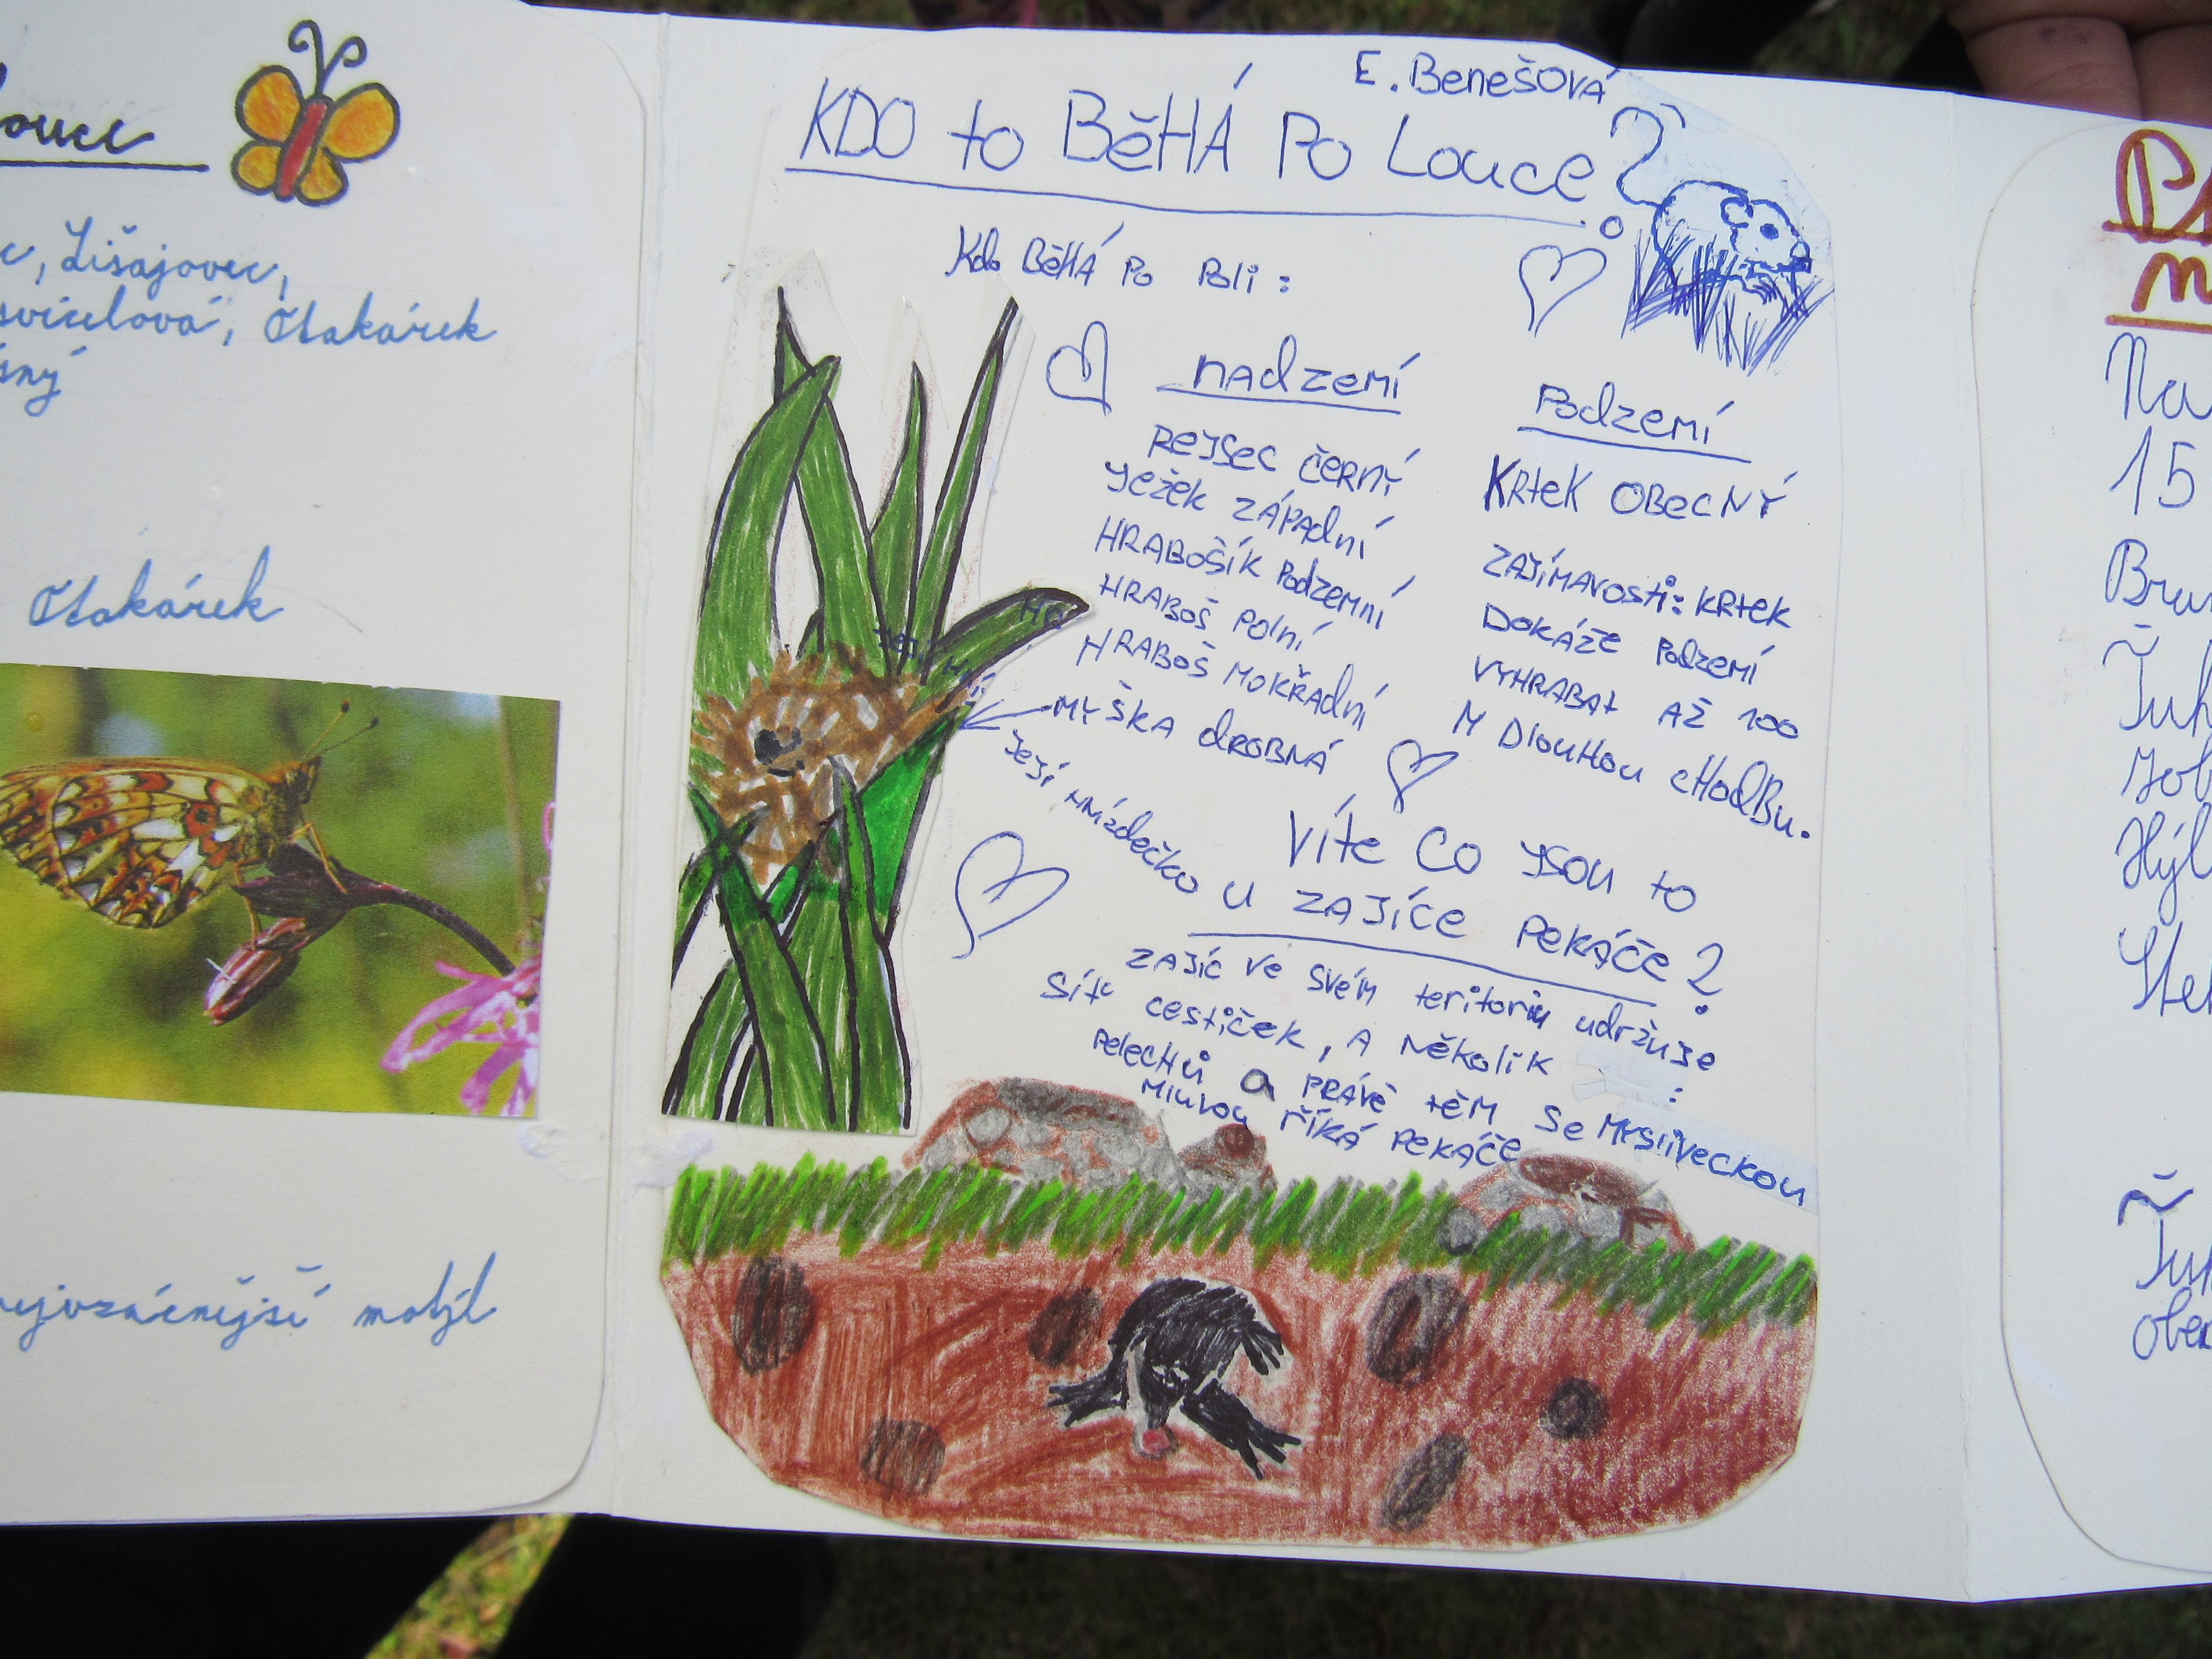 Lišajovec,
Otakárek
Otakárek
motýl
E. Benešová
KDO to BěHÁ Po Louce?
Kdo BěHÁ Po Poli:
nadzemí
REJSEC ČERNÝ
Ježek ZÁPAdní
HRABOŠÍK Podzemní
HRABOŠ Polní
HRABOŠ MOKŘAdní
MYŠKA dROBNÁ
JeJí HNízdečko
Podzemí
KRteK OBecNÝ
ZAJíMAVosti: KRtek
DOKÁŽe Podzemí
VYHRABAt AŽ 100
M DlouHou cHodBu.
Víte Co JSOU to
u ZAJíce PeKÁČe?
ZAJíc Ve SVéM teritoriu udržuJe
Síť cestiček, A Několik
PelecHů a PRÁVě těM Se MYSliVecKou
MluVou říKÁ PeKÁČe
15